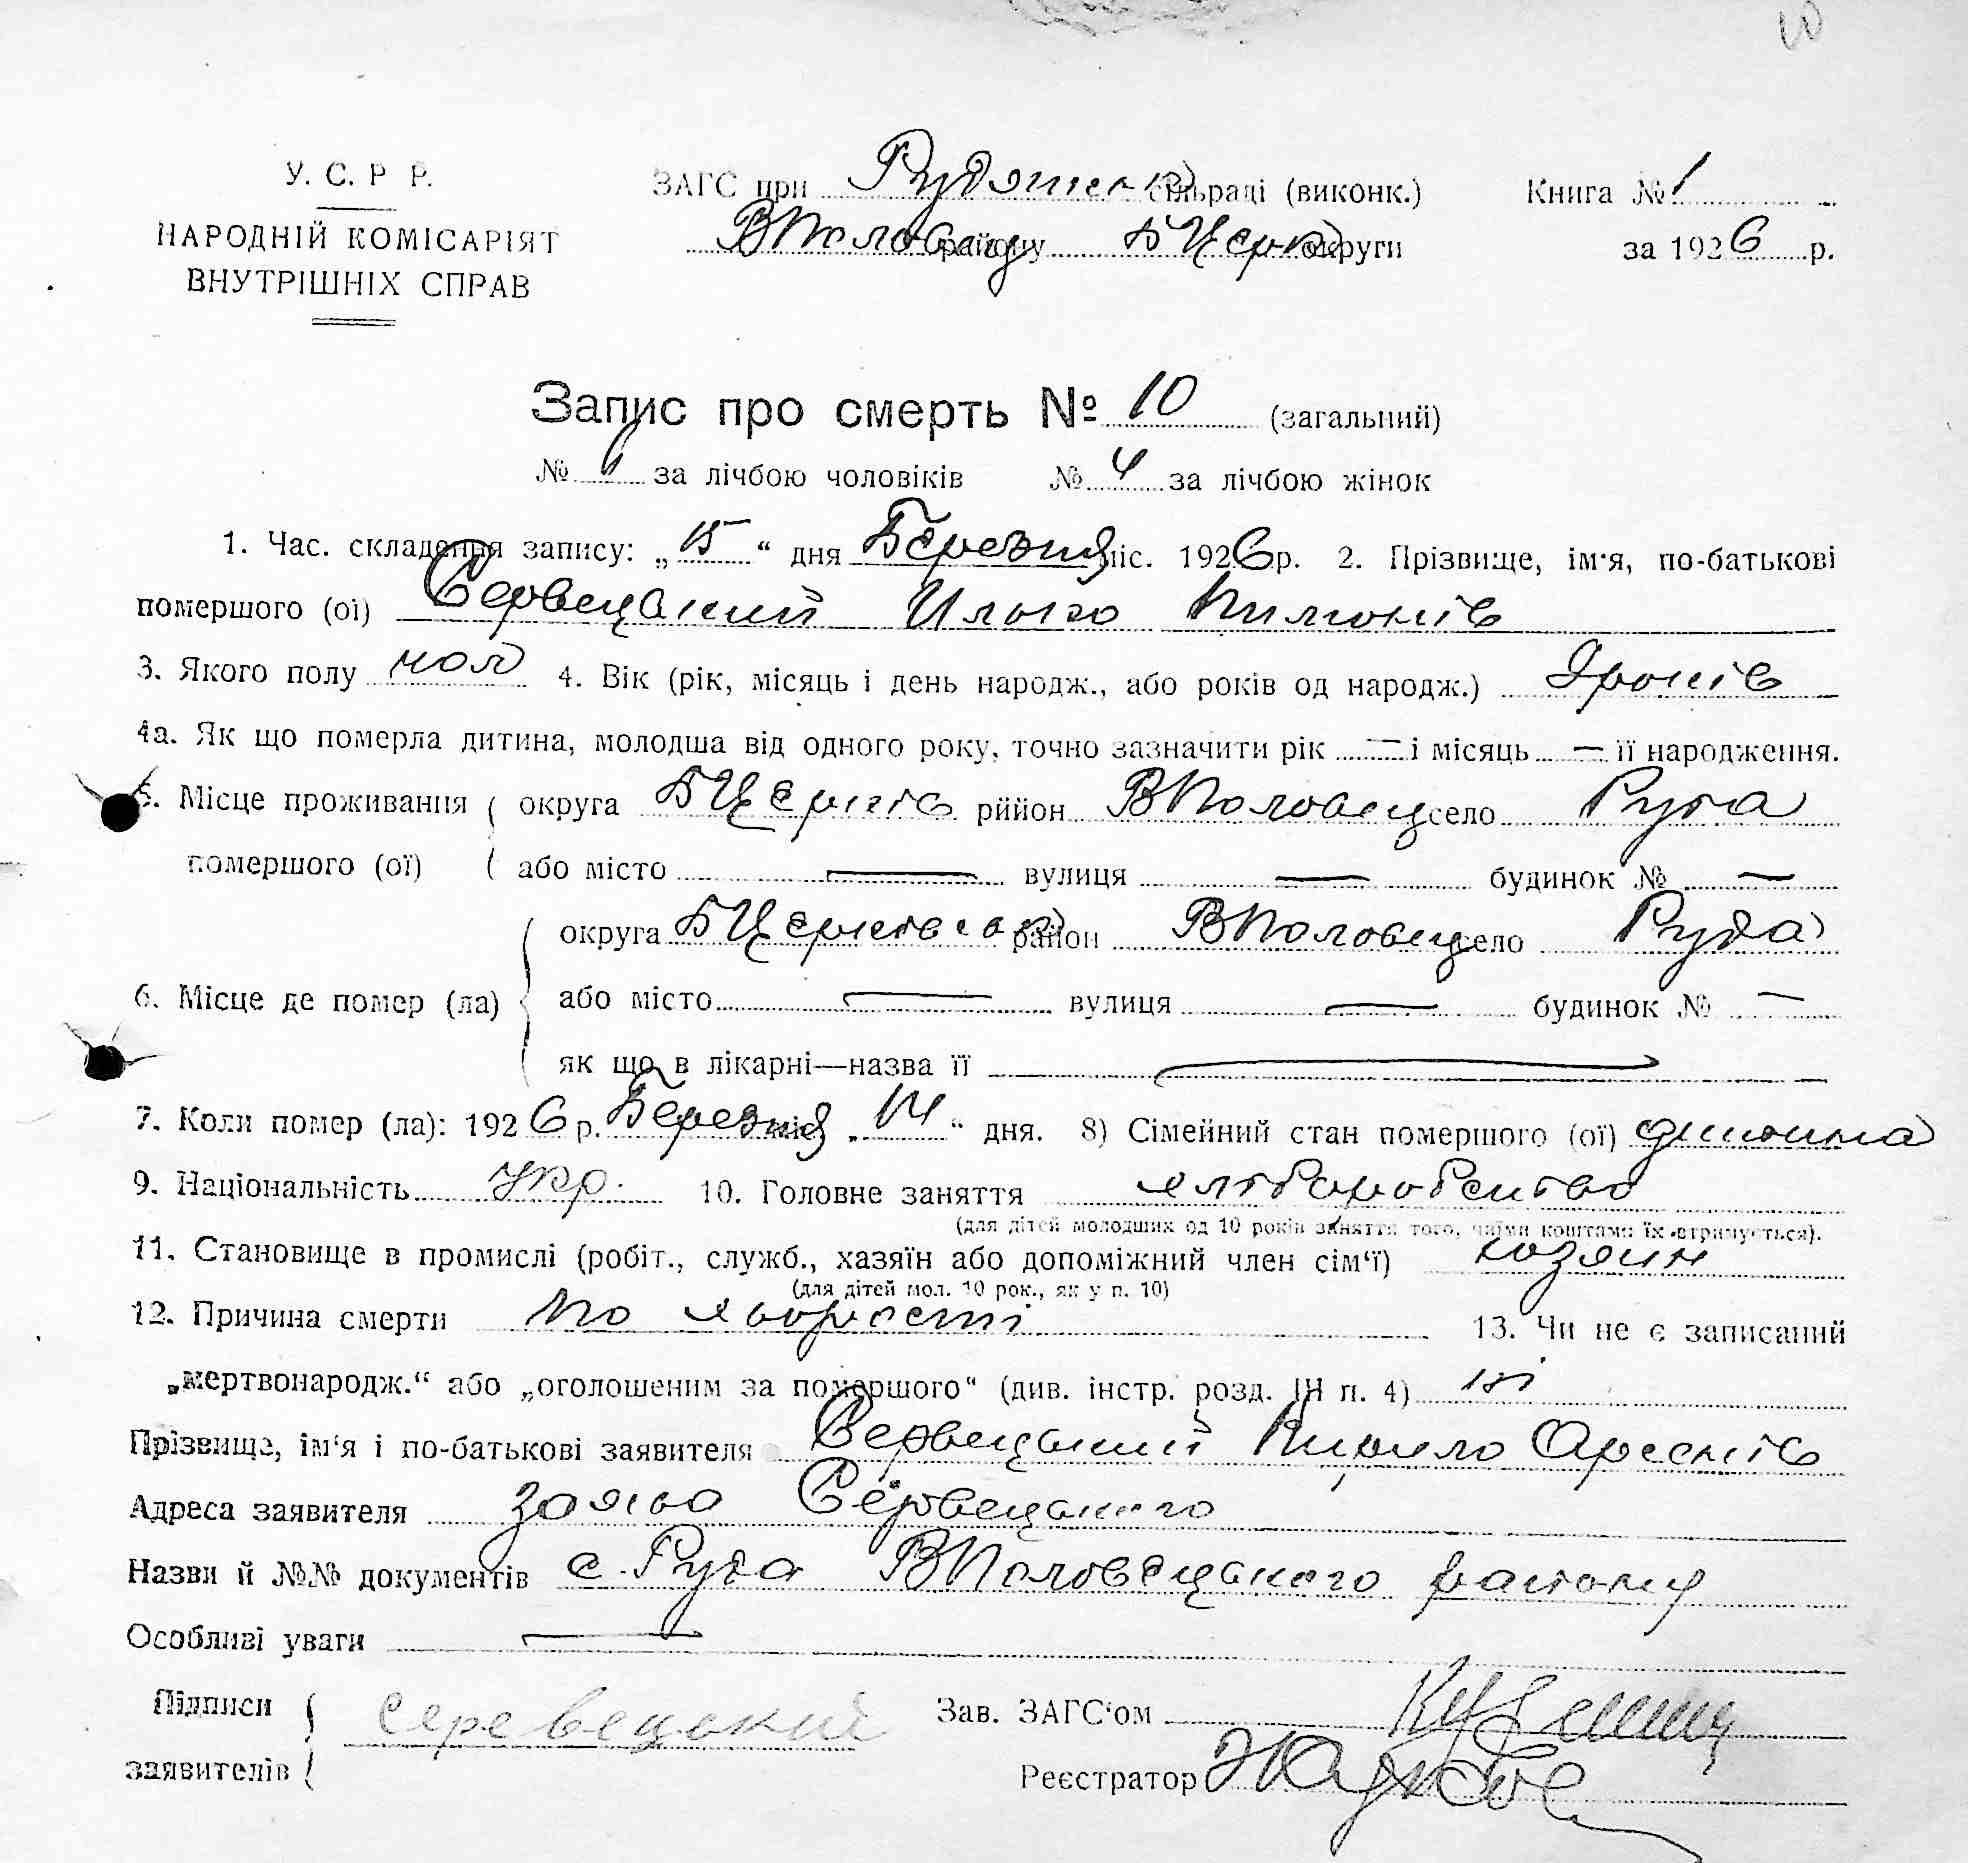 У. С. Р Р.
НАРОДНІЙ КОМІСАРІЯТ
ВНУТРІШНІХ СПРАВ
ЗАГС при Рудянськ сільраді (виконк.)
ВПоловец району БЦерк округи
Книга № 1
за 1926 р.
Запис про смерть № 10 (загальний)
№ за лічбою чоловіків № 4 за лічбою жінок
1. Час. складення запису: „15“ дня Березня міс. 1926 р. 2. Прізвище, ім'я, по-батькові
помершого (ої) Сервецький Илько Пилипів
3. Якого полу чол 4. Вік (рік, місяць і день народж., або років од народж.) років
4а. Як що померла дитина, молодша від одного року, точно зазначити рік — і місяць — її народження.
5. Місце проживання округа БЦерків рййон ВПоловец село Руда
помершого (ої) або місто — вулиця — будинок № —
округа БЦерківськ район ВПоловец село Руда
6. Місце де помер (ла) або місто — вулиця — будинок № —
як що в лікарні—назва її —
7. Коли помер (ла): 1926 р. Березня „14“ дня. 8) Сімейний стан помершого (ої) дитина
9. Національність Укр. 10. Головне заняття хліборобство
(для дітей молодших од 10 років заняття того, чаїми коштами їх втримується).
11. Становище в промислі (робіт., служб., хазяїн або допоміжний член сім'ї) хозяин
(для дітей мол. 10 рок., як у п. 10)
12. Причина смерти По хворості 13. Чи не є записаний
„мертвонародж.“ або „оголошеним за помершого“ (див. інстр. розд. ІН п. 4) ні
Прізвище, ім'я і по-батькові заявителя Сервецький Кирило
Адреса заявителя Сервецького
Назви й №№ документів с. Руда ВПоловецького району
Особливі уваги —
Підписи серевецький Зав. ЗАГС'ом
заявителів Реєстратор